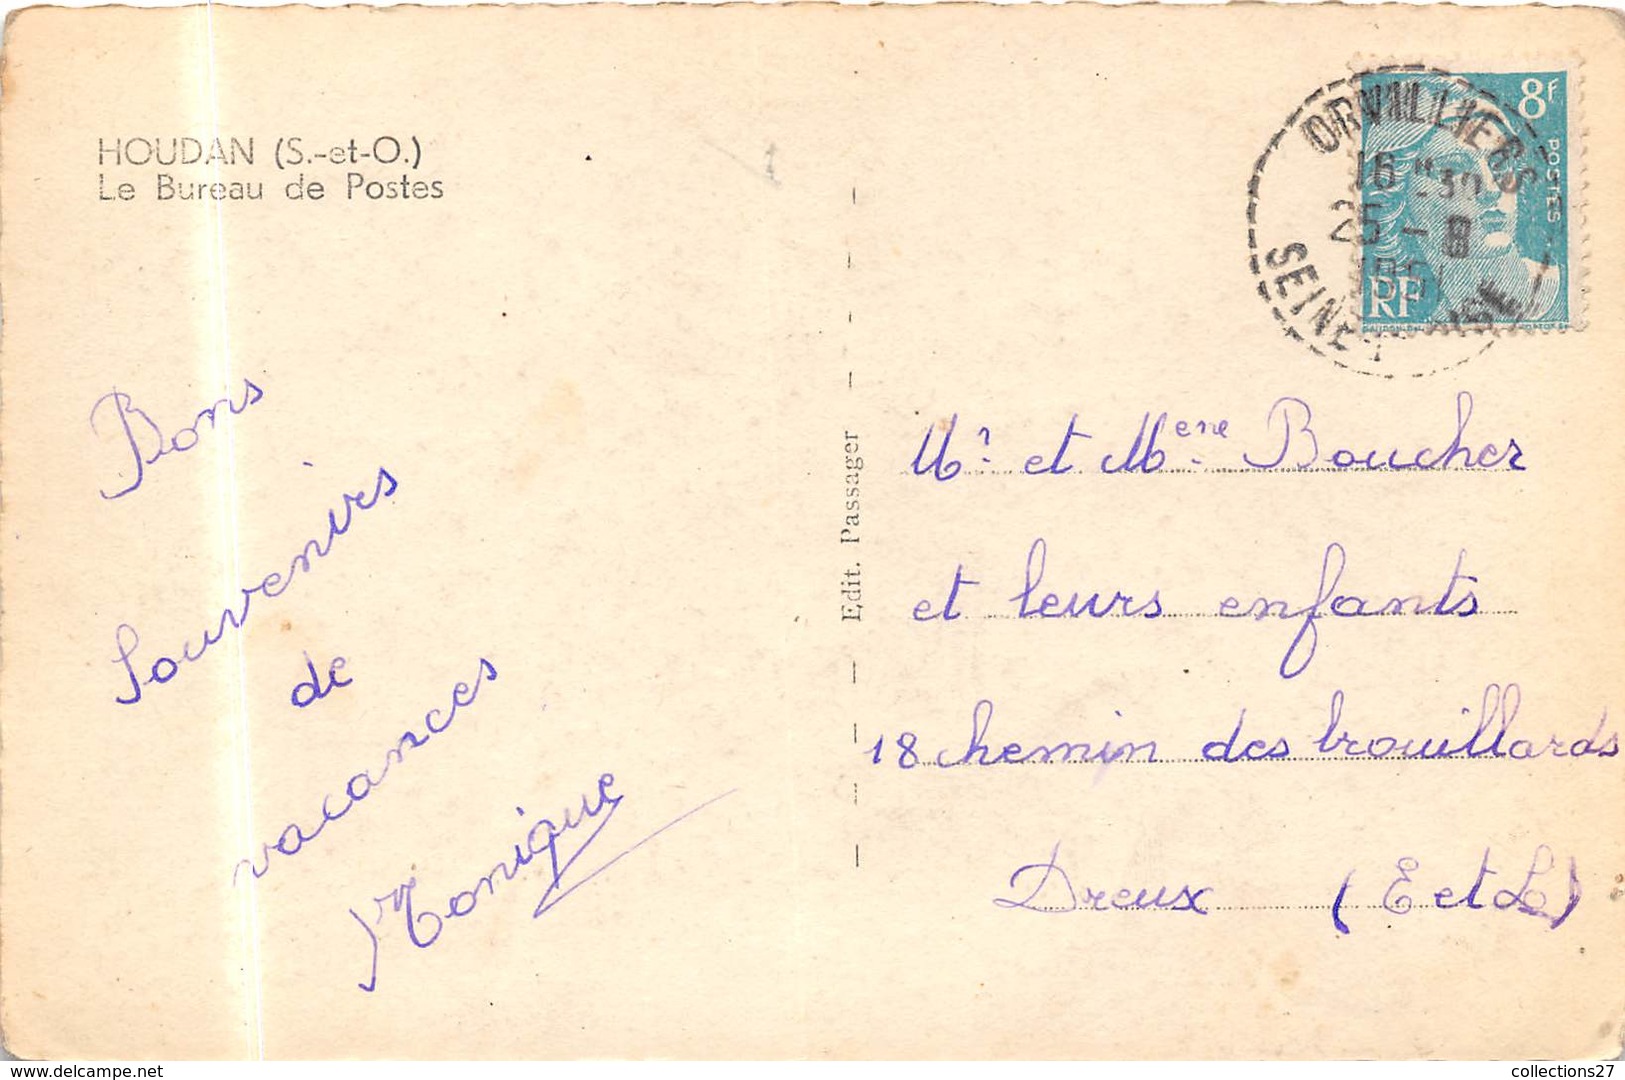 HOUDAN (S.-et-O.)
Le Bureau de Postes
Bons
Souvenirs
de
vacances
Monique
Edit. Passager
ORVILLIERS
16 30
25 - 8
SEINE-
8F
POSTES
RF
Mr. et Meme. Boucher
et leurs enfants
18 chemin des brouillards
Dreux (E et L)
www.delcampe.net
collections27